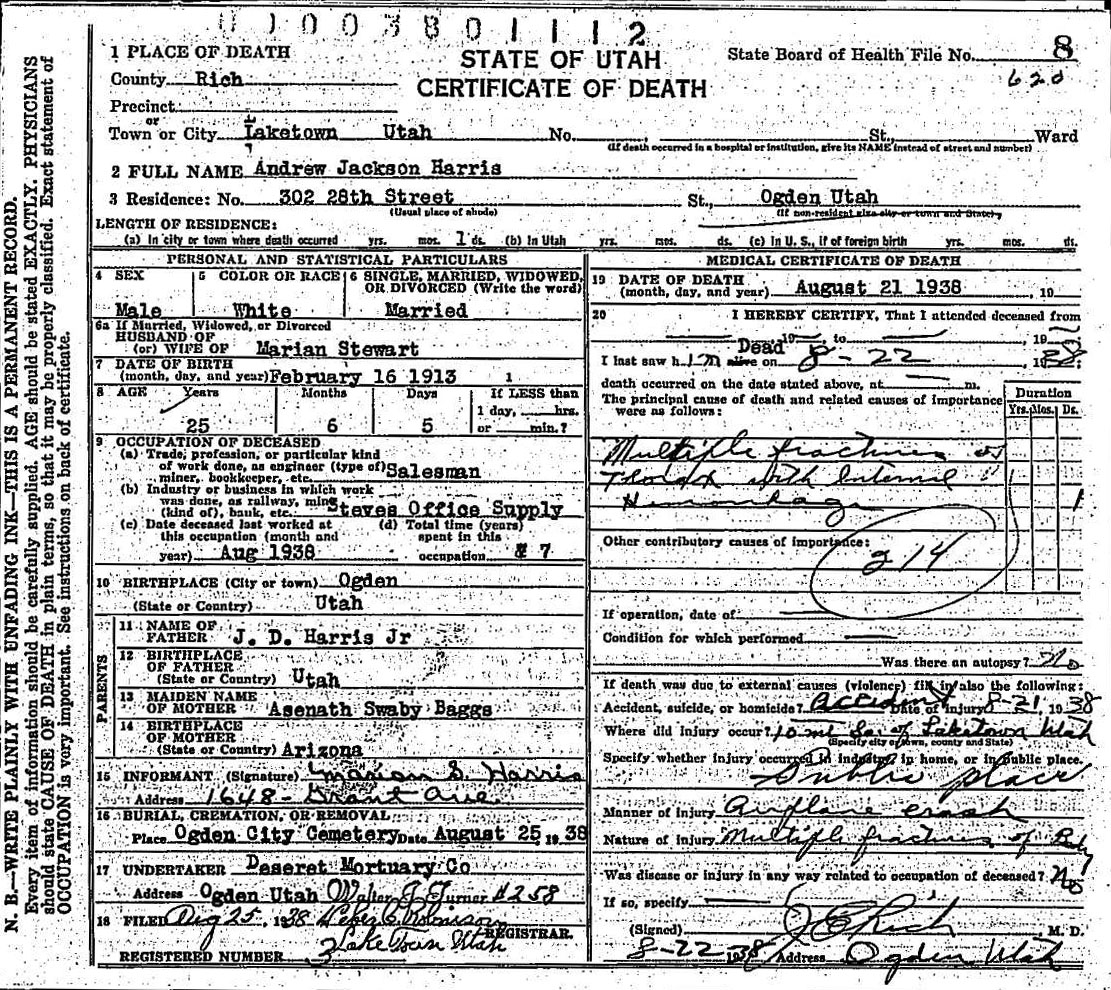 0 1 0 0 3 8 0 1 1 1 2
N. B.—WRITE PLAINLY WITH UNFADING INK—THIS IS A PERMANENT RECORD.
Every item of information should be carefully supplied. AGE should be stated EXACTLY. PHYSICIANS
should state CAUSE OF DEATH in plain terms, so that it may be properly classified. Exact statement of
OCCUPATION is very important. See instructions on back of certificate.
STATE OF UTAH
CERTIFICATE OF DEATH
State Board of Health File No. 8
620
1 PLACE OF DEATH
County Rich
Precinct
or
Town or City Laketown Utah No. , St., Ward
(If death occurred in a hospital or institution, give its NAME instead of street and number)
2 FULL NAME Andrew Jackson Harris
3 Residence: No. 302 28th Street St., Ogden Utah
(Usual place of abode) (If non-resident give city or town and State)
LENGTH OF RESIDENCE:
(a) In city or town where death occurred yrs. mos. 1 ds. (b) In Utah yrs. mos. ds. (c) In U. S., if of foreign birth yrs. mos. ds.
PERSONAL AND STATISTICAL PARTICULARS
4 SEX 5 COLOR OR RACE 6 SINGLE, MARRIED, WIDOWED, OR DIVORCED (Write the word)
Male White Married
6a If Married, Widowed, or Divorced
HUSBAND OF
(or) WIFE OF Marian Stewart
7 DATE OF BIRTH
(month, day, and year) February 16 1913 1
8 AGE Years Months Days If LESS than
1 day, hrs.
25 6 5 or min.?
9 OCCUPATION OF DECEASED
(a) Trade, profession, or particular kind
of work done, as engineer (type of) Salesman
miner, bookkeeper, etc.
(b) Industry or business in which work
was done, as railway, mine
(kind of), bank, etc. Steves Office Supply
(c) Date deceased last worked at (d) Total time (years)
this occupation (month and spent in this
year) Aug 1938 occupation 7
10 BIRTHPLACE (City or town) Ogden
(State or Country) Utah
PARENTS
11 NAME OF
FATHER J. D. Harris Jr
12 BIRTHPLACE
OF FATHER
(State or Country) Utah
13 MAIDEN NAME
OF MOTHER Asenath Swaby Baggs
14 BIRTHPLACE
OF MOTHER
(State or Country) Arizona
15 INFORMANT (Signature) Marian S. Harris
Address 1648 - Grant Ave.
16 BURIAL, CREMATION, OR REMOVAL
Place Ogden City Cemetery Date August 25, 19 38
17 UNDERTAKER Deseret Mortuary Co
Address Ogden Utah Walter J Turner #258
18 FILED Aug 25, 1938 Robinson
REGISTRAR.
Lake Town Utah
REGISTERED NUMBER 3
MEDICAL CERTIFICATE OF DEATH
19 DATE OF DEATH
(month, day, and year) August 21 1938, 19
20 I HEREBY CERTIFY, That I attended deceased from
— 19—, to — , 19—
Dead
I last saw h im alive on 8-22 1938
death occurred on the date stated above, at — m.
The principal cause of death and related causes of importance
were as follows:
Duration
Yrs. Mos. Ds.
Multiple fractures of
with Internal
Hemorrhage 1
Other contributory causes of importance:
214
If operation, date of —
Condition for which performed —
Was there an autopsy? No
If death was due to external causes (violence) fill in also the following:
Accident, suicide, or homicide? Accident Date of injury 8-21, 1938
Where did injury occur? 10 mi of Laketown Utah
(Specify city or town, county and State)
Specify whether injury occurred in industry, in home, or in public place.
Public place
Manner of injury Airplane crash
Nature of injury Multiple fractures of Body
Was disease or injury in any way related to occupation of deceased? No
If so, specify
(Signed) J C Rich , M. D.
8-22 1938 Address Ogden Utah